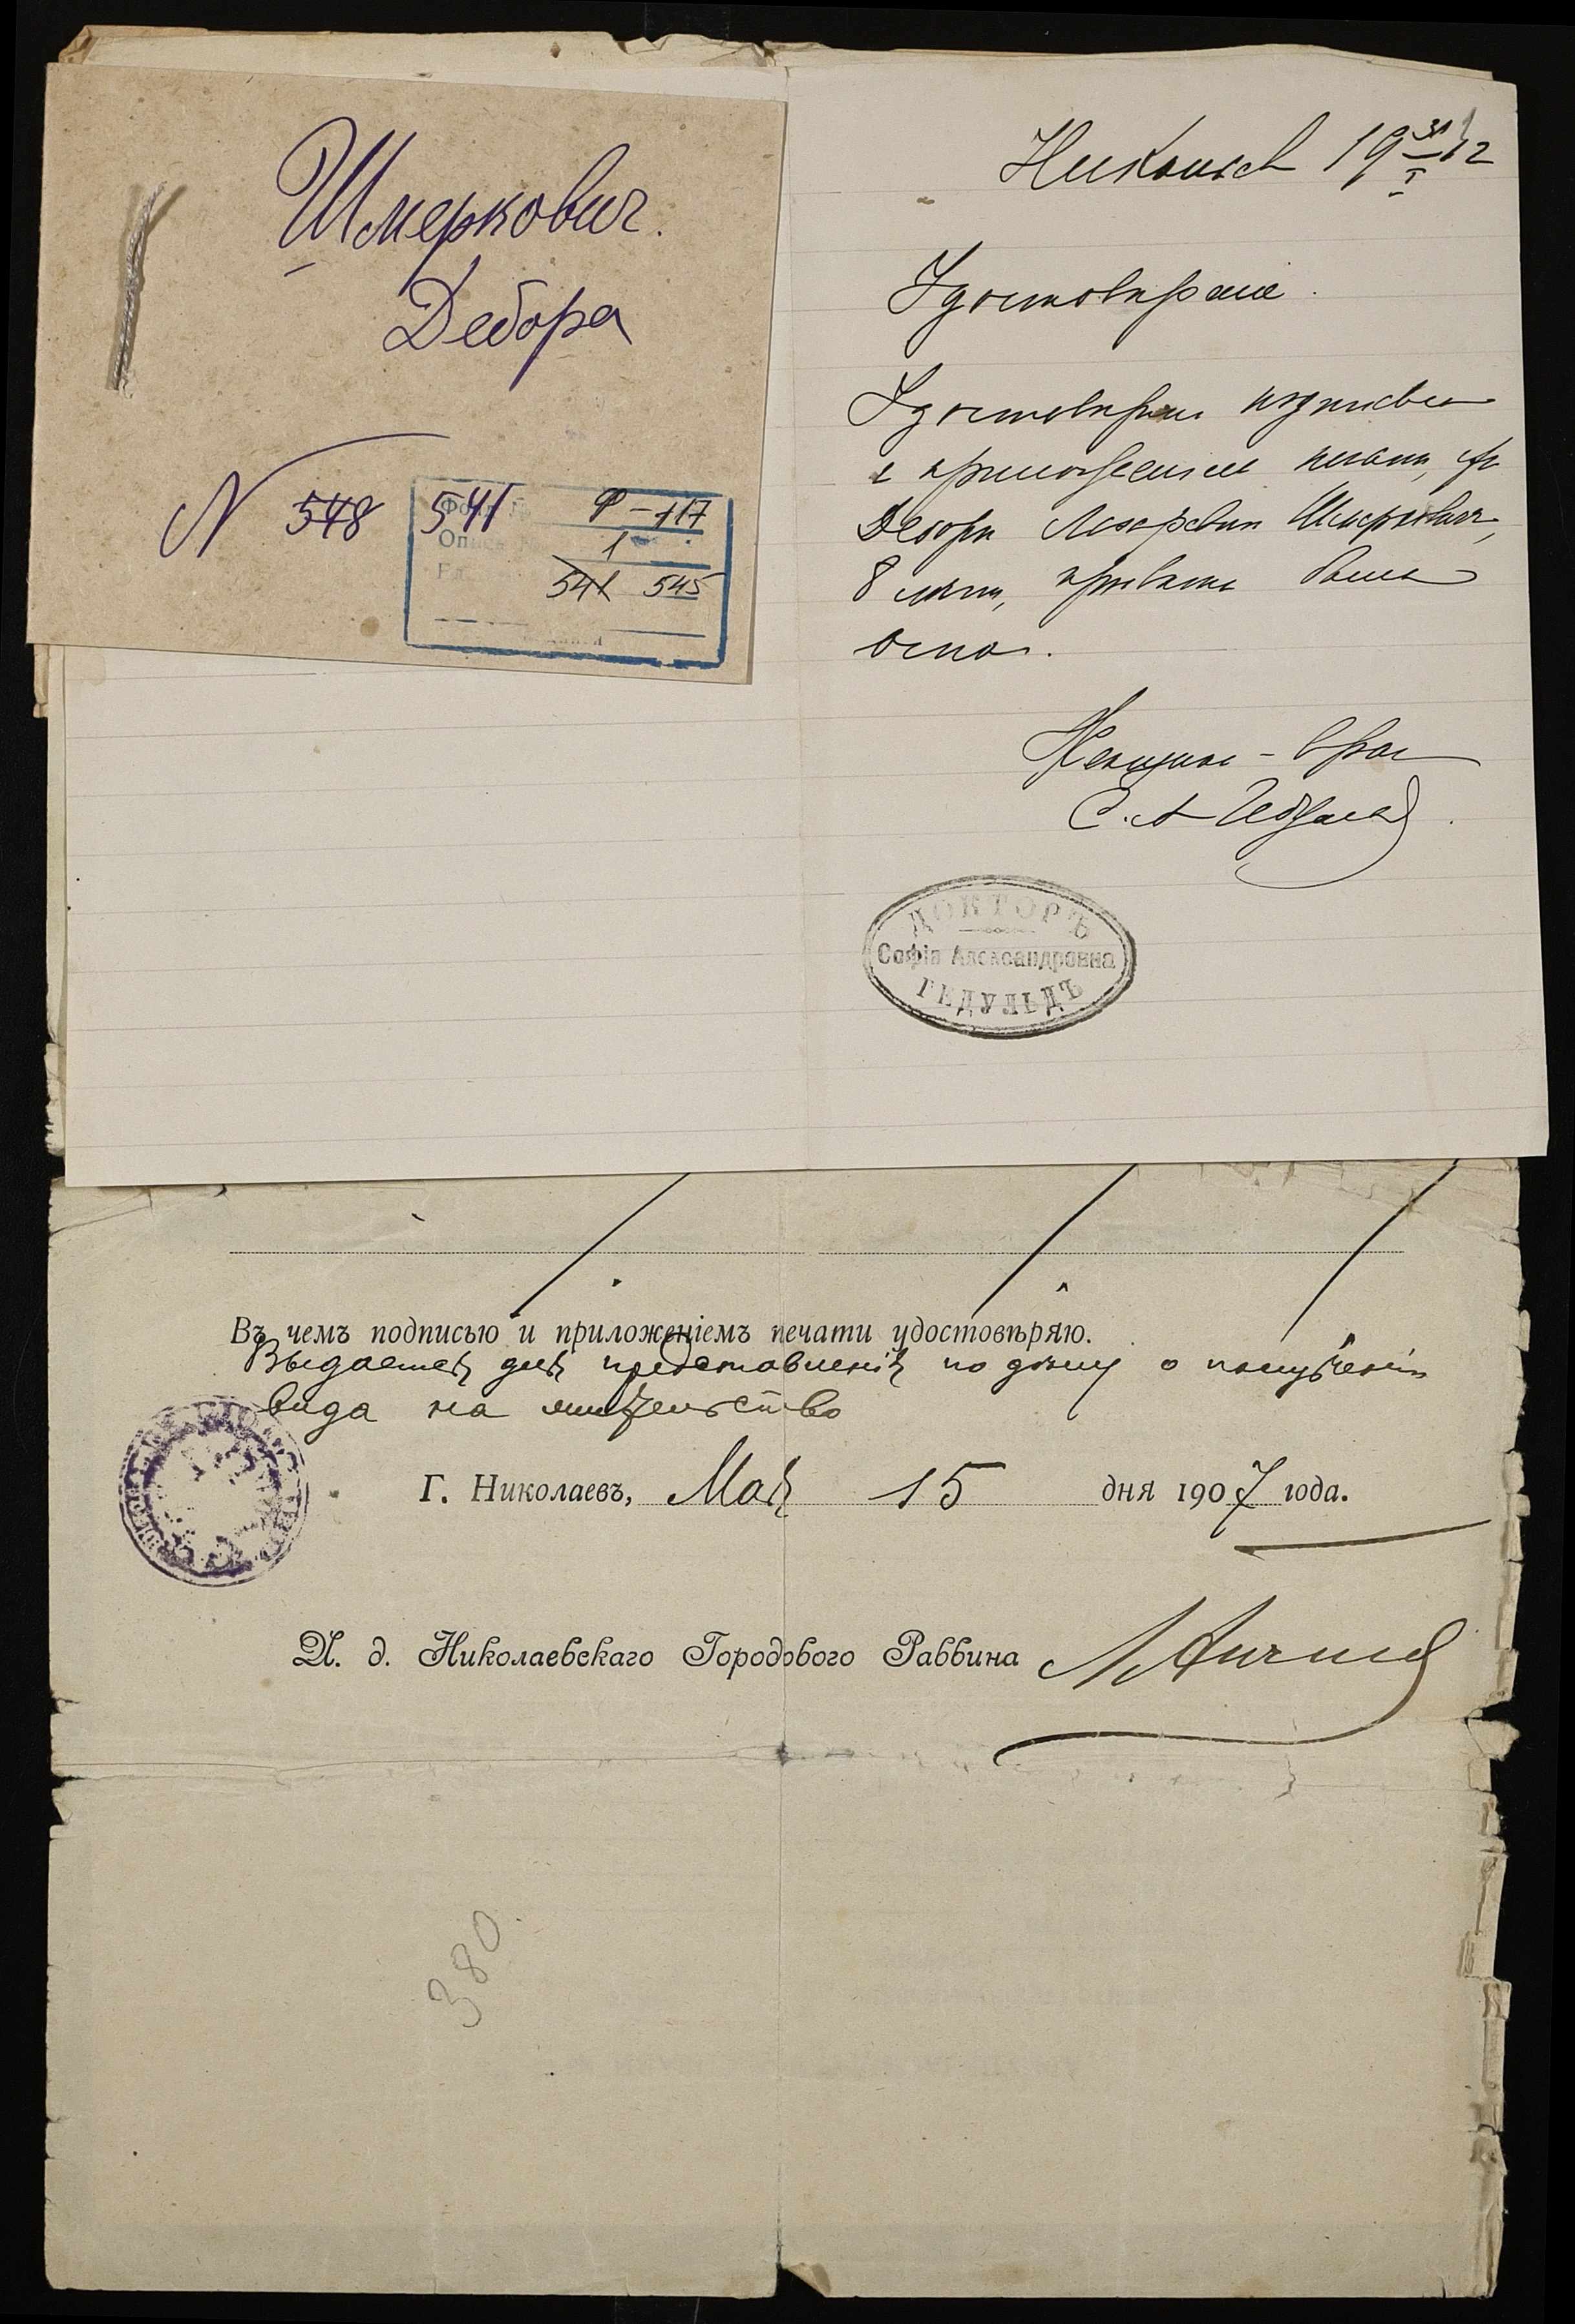 Шмеркович.
Дебора
N 548 541
Фонд Ф-117
Опись 1
541 545
Николаев 19 31/I 12
Удостоверение.
Удостоверяю подписью
и приложением печати, что
Деборе Лазаревне Шмеркович,
8 лет, привита была
оспа.
Женщина-врач
С. А Гедульд.
ДОКТОРЪ
Софія Александровна
ГЕДУЛЬДЪ
Въ чемъ подписью и приложеніемъ печати удостовѣряю.
Выдается для представленія по дѣлу о полученіи
вида на жительство
Г. Николаевъ, Мая 15 дня 1907 года.
И. д. Николаевскаго Городового Раввина
380.